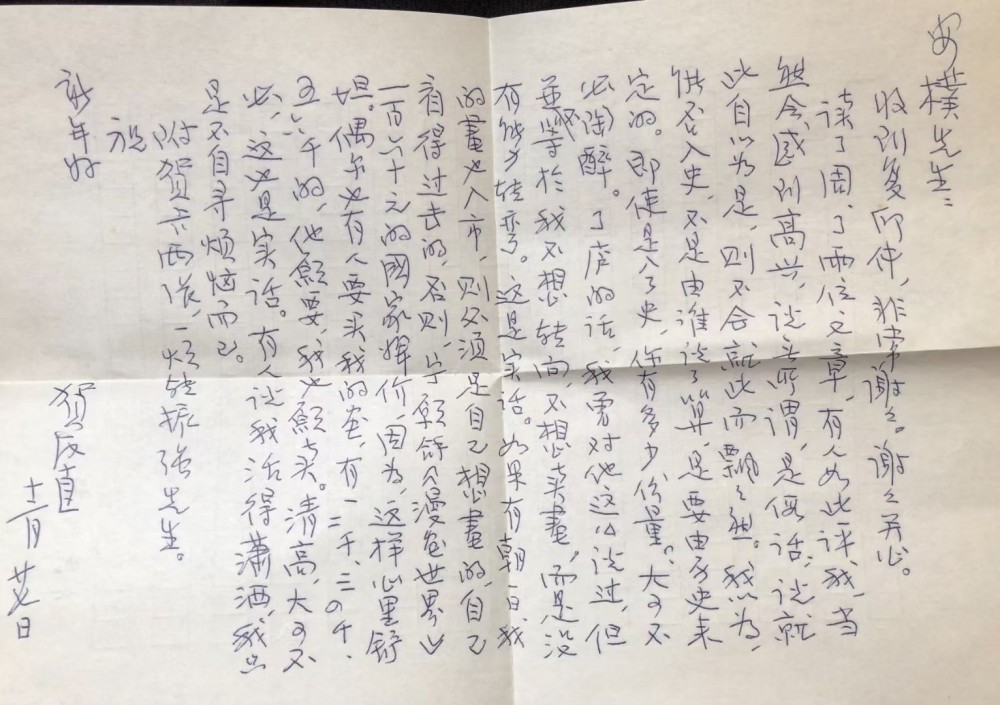 安樸先生：
收到复印件，非常谢谢。谢谢关心。
读了周、丁两位文章，有人如此评我，当
然会感到高兴，说无所谓，是假话，说就
此自以为是，则不会就此而飘飘然。我以为，
能不入史，不是由谁说了算，是要由历史来
定的。即使是入了史，你有多少份量。大可不
必陶醉。丁庐的话，我曾对他这么说过，但
并不等於我不想转向，不想卖畫，而是没
有能力转弯。这是实话。如果有朝一日我
的畫也入市，则必须是自己想畫的，自己
看得过去的，否则，宁願舒〈漫卷世界〉
一百六十元的國家稿价，因为，这样心里舒
坦。偶尔也有人要买我的画，有一二千、三四千、
五六千的，他願要，我也願卖。清高，大可不
必，这也是实话。有人说我活得潇洒，我只
是不自寻烦恼而已。
附贺卡两张，一烦转振强先生。
祝
新年好
贺友直
十二月廿七日